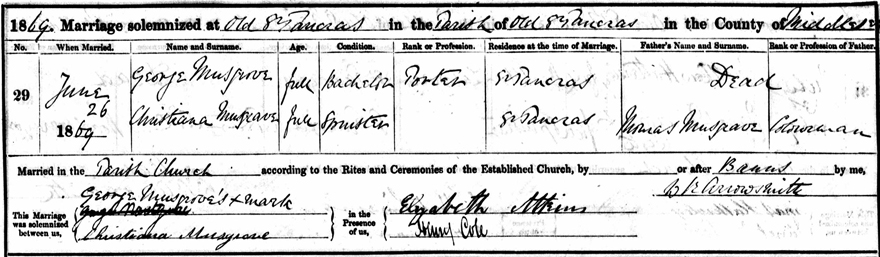 1869. Marriage solemnized at Old St Pancras in the Parish of Old St Pancras in the County of Middlesex
No. When Married. Name and Surname. Age. Condition. Rank or Profession. Residence at the time of Marriage. Father's Name and Surname. Rank or Profession of Father.
29 June 26 1869 George Musgrove full Bachelor Porter St Pancras Dead
Christiana Musgrave full Spinster St Pancras Thomas Musgrave
Married in the Parish Church according to the Rites and Ceremonies of the Established Church, by or after Banns by me,
George Musgrove's x mark Arrowsmith
This Marriage was solemnized between us, Christiana Musgrove in the Presence of us, Elizabeth Atkins
Henry Cole